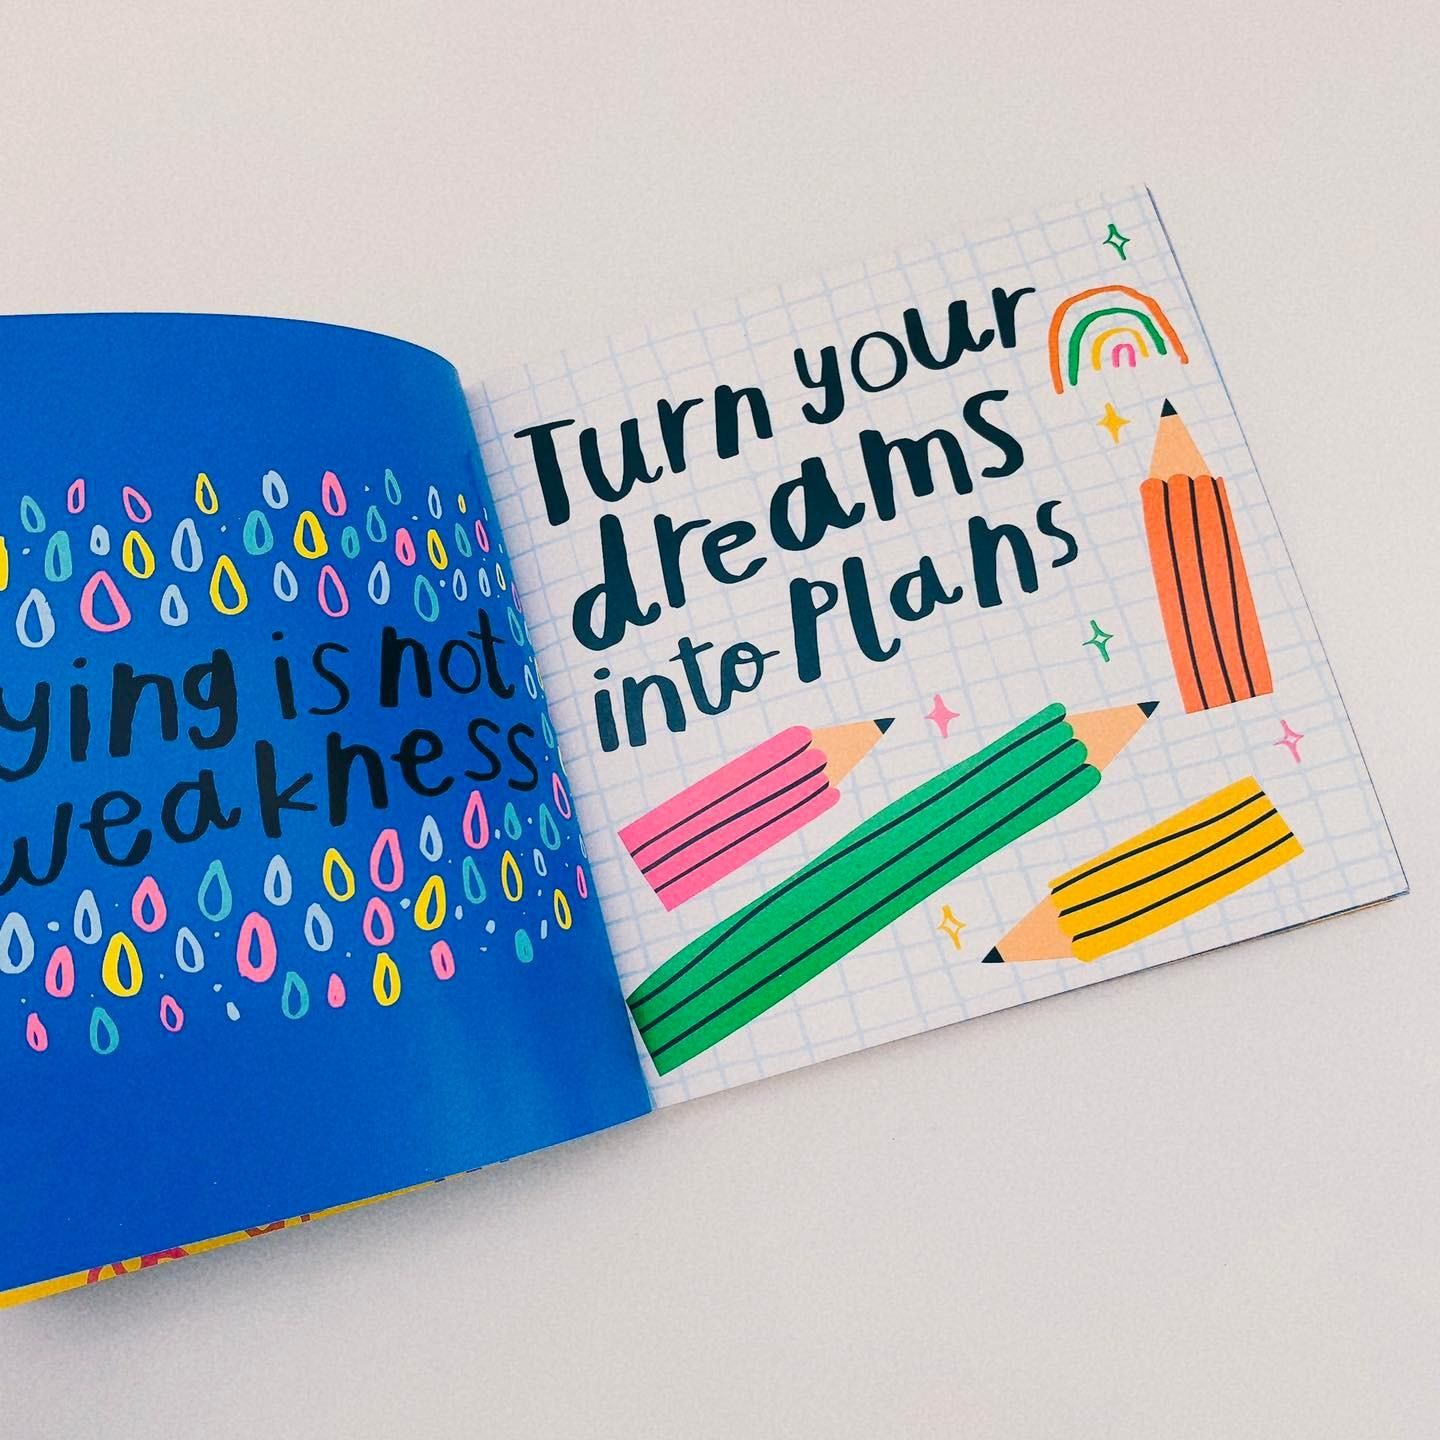 ying is not
weakness
Turn your
dreams
into Plans